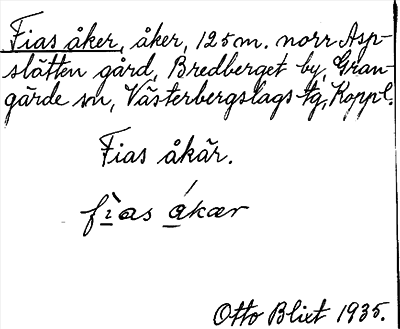 Fias åker, åker, 125 m. norr Asp-
slätten gård, Bredberget by, Gran-
gärde sn, Västerbergslags tg, Koppl.
Fias åkär.
fìas ákær
Otto Blixt 1935.